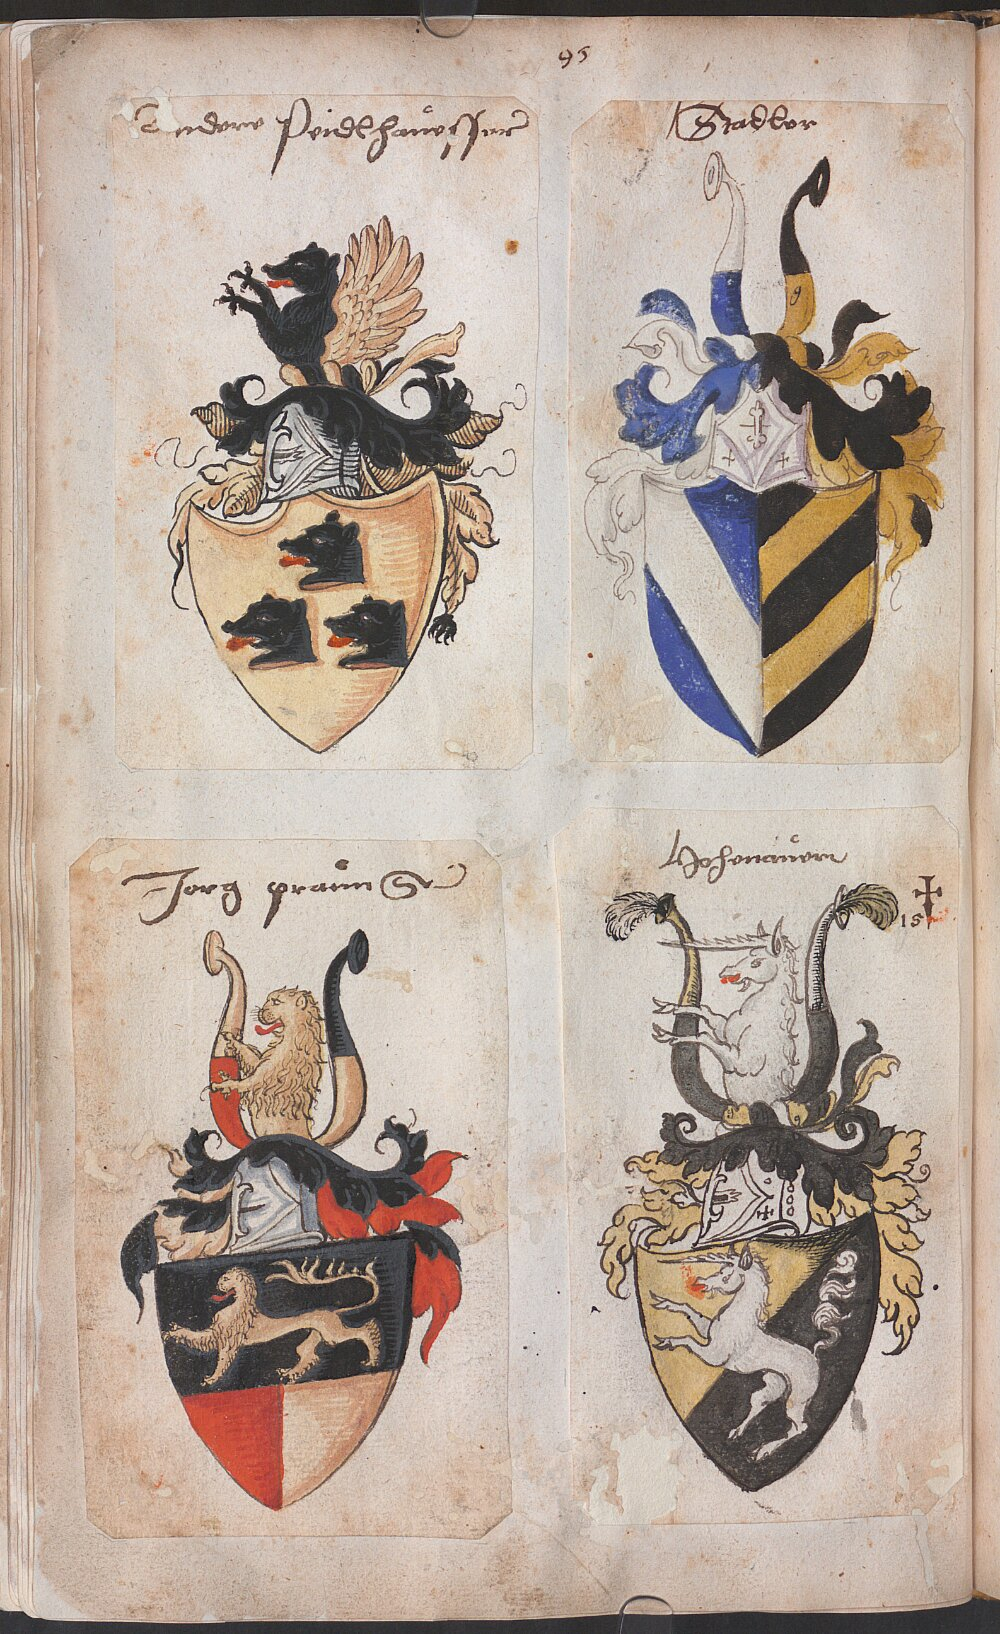 95
Andere Peidlhaüesser
Stadler
g
Jorg praün
Hohenaüern
15